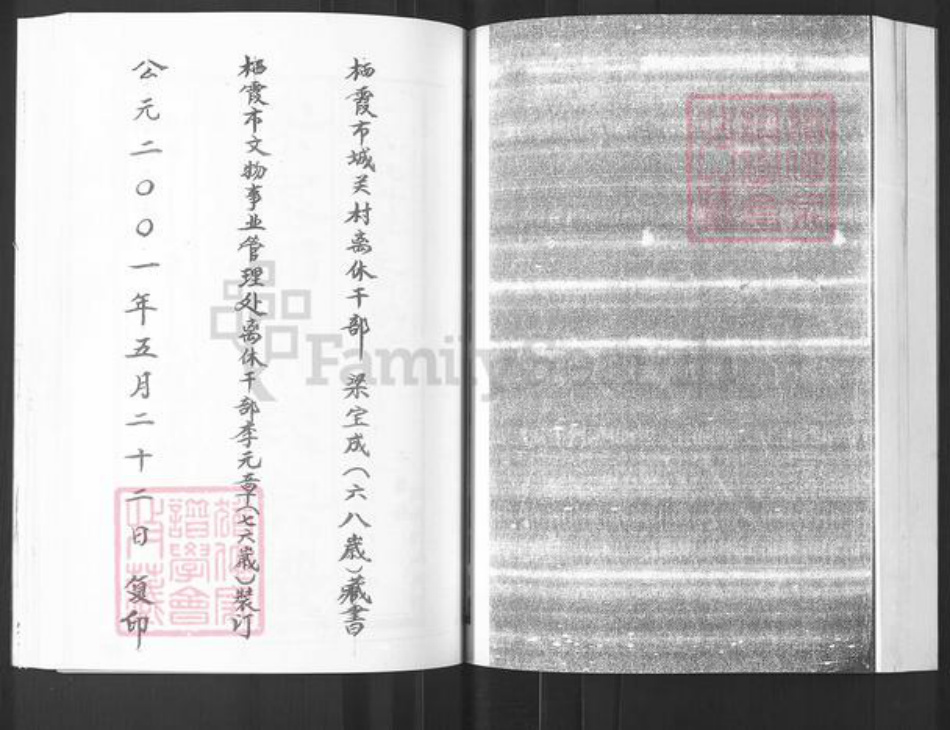 栖霞市城关村离休干部 梁宝成(六八歲)藏書
栖霞市文物事业管理处离休干部李元章(七六歲)裝订
公元二〇〇一年五月二十二日 复印
譜學會
FamilySearch